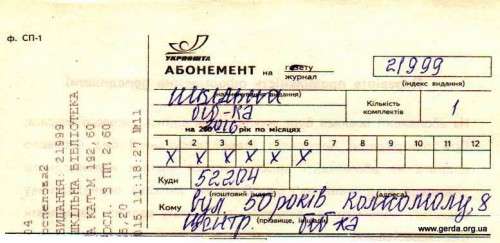 ф. СП-1
УКРПОШТА
АБОНЕМЕНТ на газету журнал
21999
(індекс видання)
шкільна
(найменування видання)
біб-ка
Кількість комплектів
1
на 2016 рік по місяцях
1 2 3 4 5 6 7 8 9 10 11 12
X X X X X X
Куди 52204
(поштовий індекс) (адреса)
Кому вул 50 років комсомолу, 8
центр. біб ка
(прізвище, ініціали)
www.gerda.org.ua
04
оспелова2
ВИДАННЯ: 21999
КІЛЬНА БІБЛІОТЕКА
А КАТ-М 192,60
ОСЛ. З ПП 2,60
5,20
015 11:18:27 №11